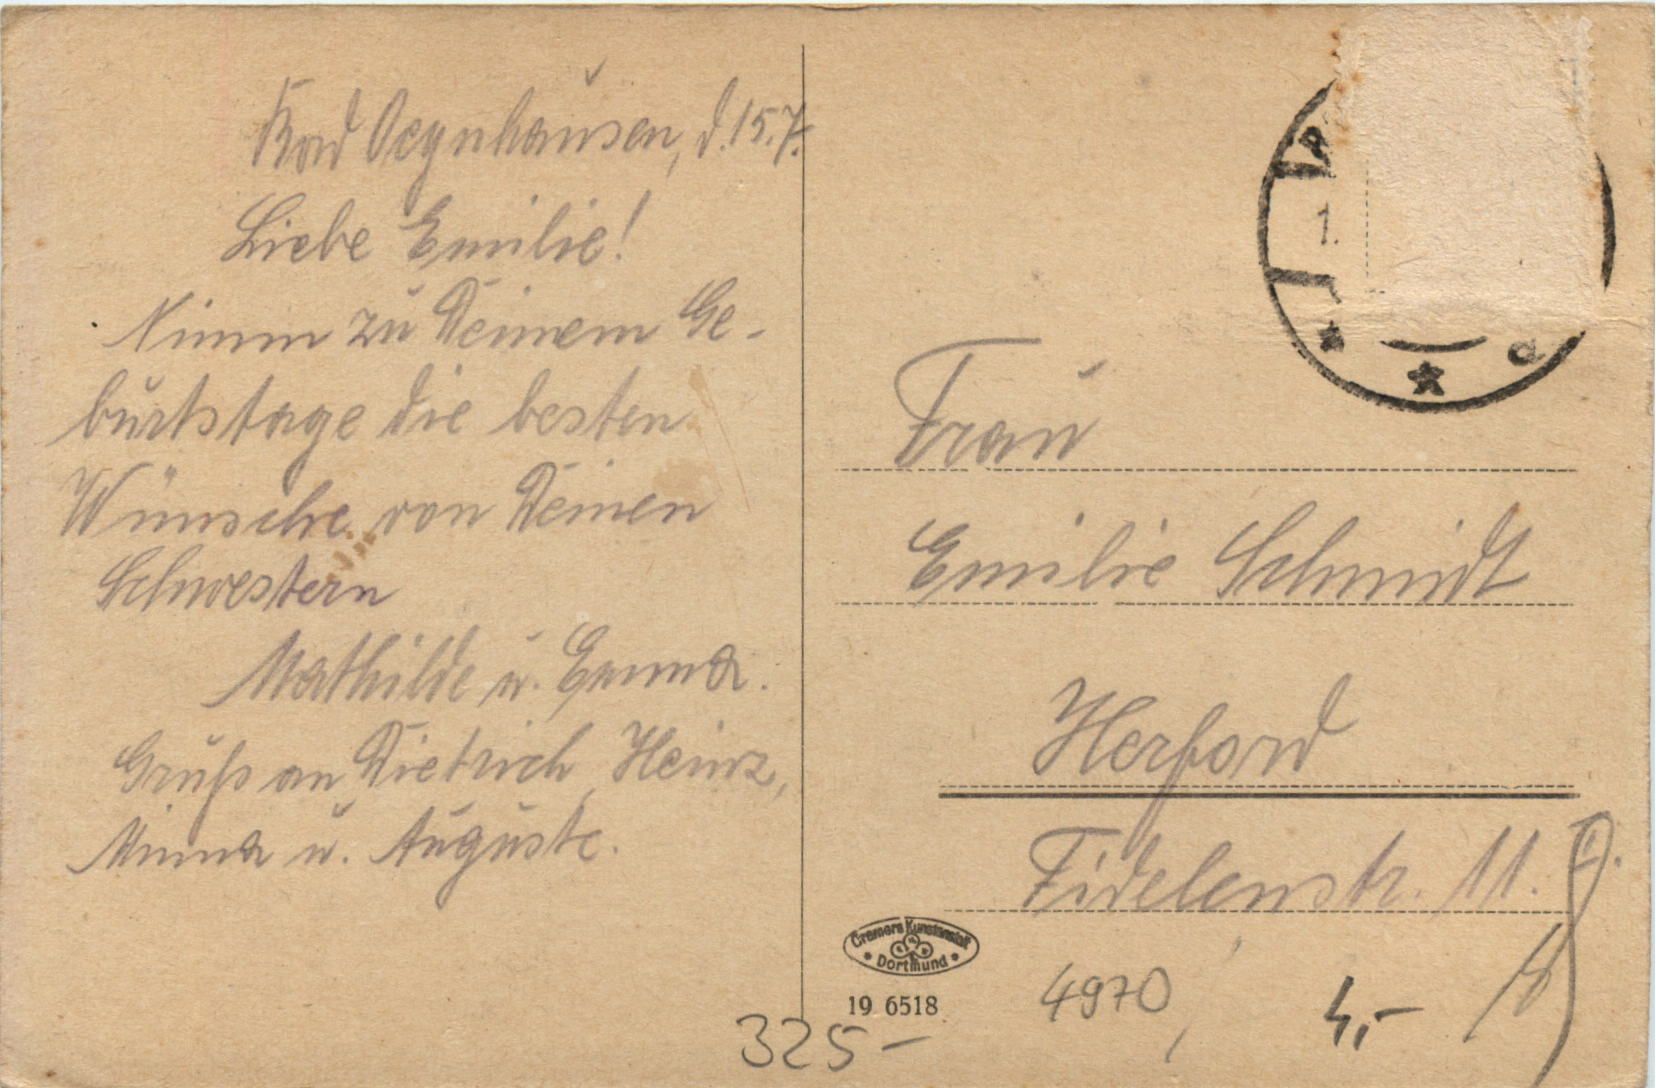 Bad Oeynhausen, d. 15.7.
Liebe Emilie!
Nimm zu Deinem Ge-
burtstage die besten
Wünsche von Deinen
Schwestern
Mathilde u. Emma.
Gruß an Dietrich, Heinz,
Minna u. Auguste.
Frau
Emilie Schmidt
Herford
Fidelenstr. 11.
Cramers Kunstanstalt
Dortmund
19 6518
4970
4,-
325-